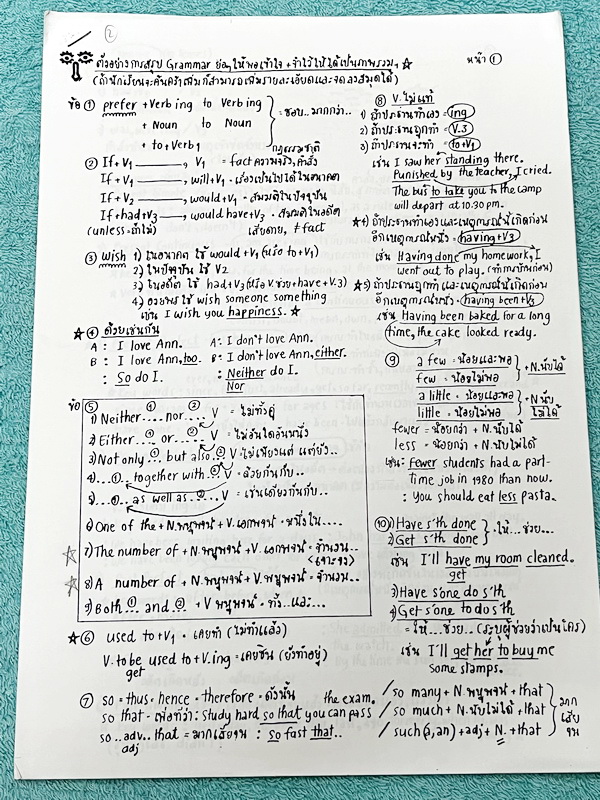 ②
ตัวอย่างการสรุป Grammar ย่อๆ ให้พอเข้าใจ + จำไว้ให้ได้เป็นภาพรวมๆ ☆
หน้า ①
(ถ้านักเรียนจะค้นคว้าเพิ่มก็สามารถเพิ่มรายละเอียดและจดลงสมุดได้)
ข้อ ① prefer + Verb ing to Verb ing
+ Noun to Noun
+ to + Verb 1
= ชอบ..มากกว่า..
② If + V1 ———, V1 = fact ความจริง,คำสั่ง
กฎธรรมชาติ
If + V1 ———, will + V1 = เรื่องเป็นไปได้ในอนาคต
If + V2 ———, would + V1 = สมมติในปัจจุบัน
If + had + V3 ———, would have + V3 = สมมติในอดีต
(unless = ถ้าไม่) เสียดาย, ≠ fact
③ wish 1) ในอนาคต ใช้ would + V1 (หรือ to + V1)
2) ในปัจจุบัน ใช้ V2
3) ในอดีต ใช้ had + V3 (หรือ V.ช่วย + have + V.3)
4) อวยพรใช้ wish someone something
เช่น I wish you happiness. ☆
☆ ④ ด้วยเช่นกัน
A : I love Ann. A : I don't love Ann.
B : I love Ann, too. B : I don't love Ann, either.
: So do I. : Neither do I.
Nor
ข้อ ⑤
1) Neither ..①.. nor ..②.. V = ไม่ทั้งคู่
2) Either ..①.. or ..②.. V = ไม่อันใดอันหนึ่ง
3) Not only ..①.. but also ..②.. V = ไม่เพียงแต่ แต่ยัง..
4) ..①.. together with ..②.. V = ด้วยกันกับ..
5) ..①.. as well as ..②.. V = เช่นเดียวกันกับ..
6) One of the + N.พหูพจน์ + V.เอกพจน์ = หนึ่งใน....
☆ 7) The number of + N.พหูพจน์ + V.เอกพจน์ = จำนวน..
<เจาะจง>
☆ 8) A number of + N.พหูพจน์ + V.พหูพจน์ = จำนวน..
9) Both ..①.. and ..②.. + V พหูพจน์ = ทั้ง..และ...
☆ ⑥ used to + V1 = เคยทำ (ไม่ทำแล้ว)
V. to be used to + V.ing = เคยชิน (ยังทำอยู่)
get
⑦ so = thus = hence = therefore = ดังนั้น
so that = เพื่อที่ว่า : study hard so that you can pass the exam.
so ..adv.. that = มากเสียจน : so fast that..
adj
/ so many + N.พหูพจน์ + that
/ so much + N.นับไม่ได้ + that
/ such (a, an) + adj + N. + that
มากเสียจน
⑧ V.ไม่แท้
1) ถ้าประธานทำเอง = ing
2) ถ้าประธานถูกทำ = V.3
3) ถ้าประธานจะทำ = to + V1
เช่น I saw her standing there.
Punished by the teacher, I cried.
The bus to take you to the camp
will depart at 10.30 pm.
☆4) ถ้าประธานทำเองและเหตุการณ์นี้เกิดก่อน
อีกเหตุการณ์หนึ่ง = having + V3
เช่น Having done my homework, I
went out to play. (ทำการบ้านก่อน)
☆5) ถ้าประธานถูกทำและเหตุการณ์นี้เกิดก่อน
อีกเหตุการณ์หนึ่ง = having been + V3
เช่น Having been baked for a long
time, the cake looked ready.
⑨ a few = น้อยและพอ
few = น้อยไม่พอ
+ N.นับได้
a little = น้อยและพอ
little = น้อยไม่พอ
+ N.นับไม่ได้
fewer = น้อยกว่า + N.นับได้
less = น้อยกว่า + N.นับไม่ได้
เช่น : Fewer students had a part-
time job in 1980 than now.
: You should eat less pasta.
⑩ 1) Have s'th done
2) Get s'th done
= ให้...ช่วย...
เช่น I'll have my room cleaned.
get
3) Have s'one do s'th
4) Get s'one to do s'th
= ให้...ช่วย.. (ระบุผู้ช่วยว่าเป็นใคร)
เช่น I'll get her to buy me
some stamps.